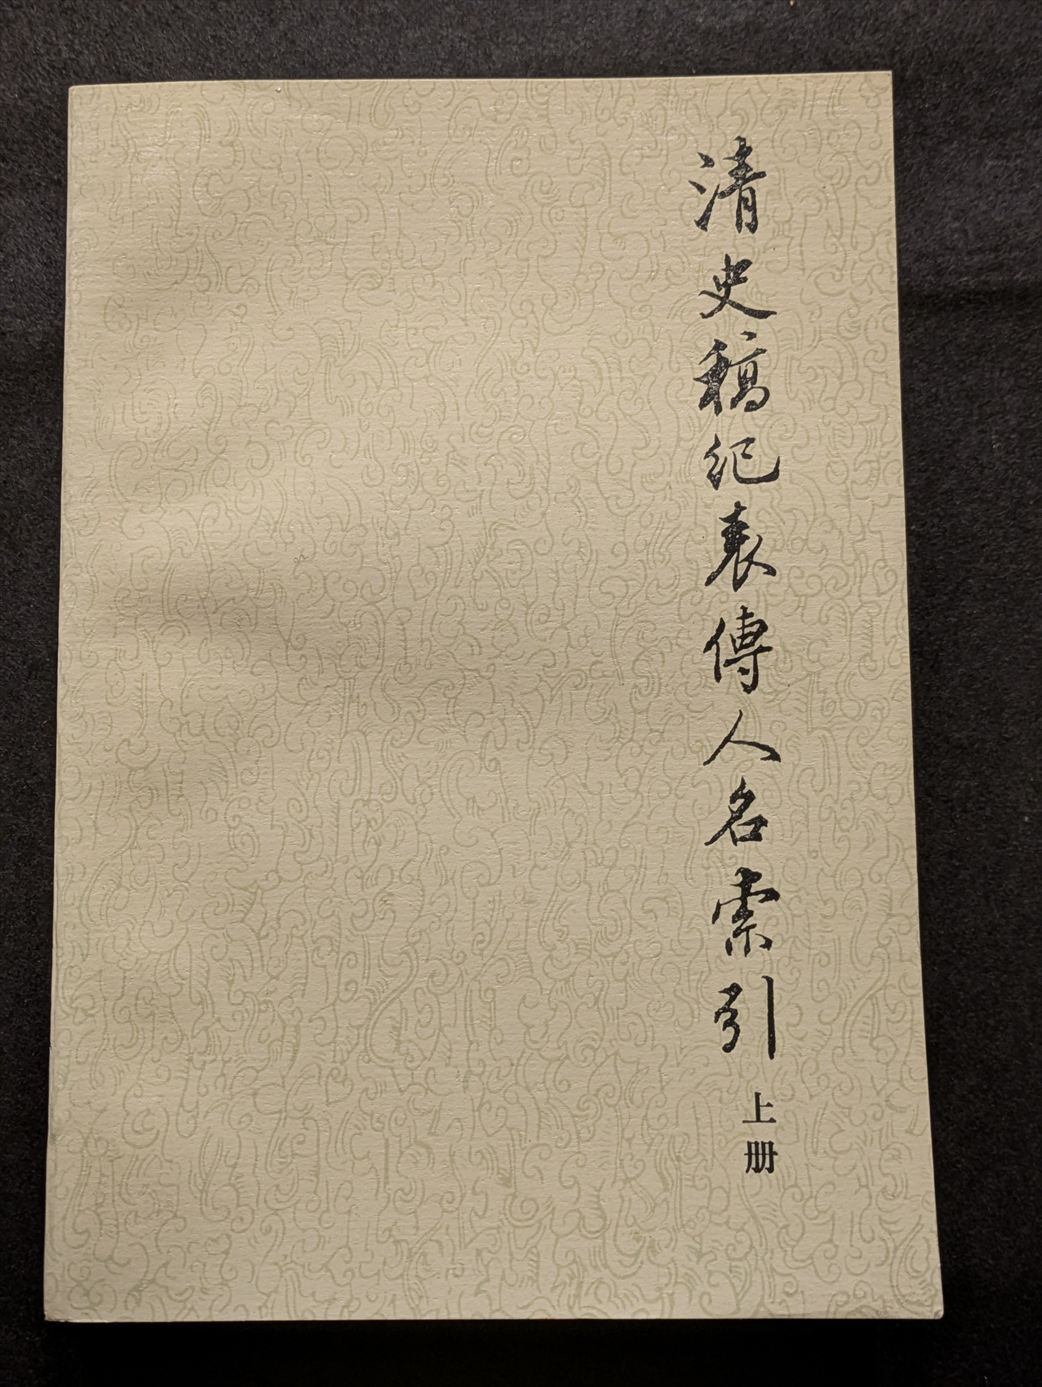 清史稿紀表傳人名索引
上册